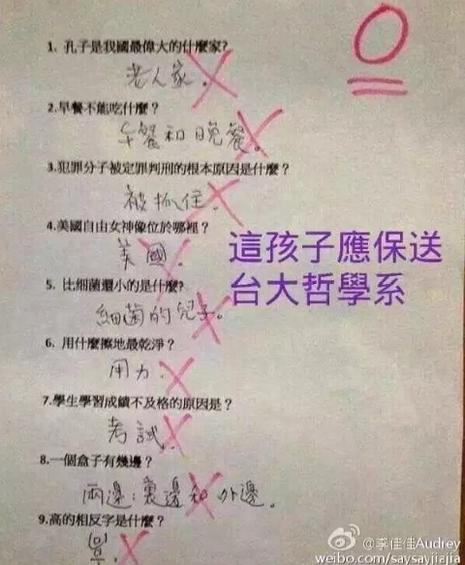 0
1. 孔子是我國最偉大的什麼家?
老人家。
2.早餐不能吃什麼？
午餐和晚餐。
3.犯罪分子被定罪判刑的根本原因是什麼？
被抓住。
4.美國自由女神像位於哪裡？
美國。
這孩子應保送
台大哲學系
5. 比細菌還小的是什麼?
細菌的兒子。
6. 用什麼擦地最乾淨？
用力.
7.學生學習成績不及格的原因是？
考試.
8.一個盒子有幾邊？
兩邊:裏邊和外邊。
9.高的相反字是什麼？
@李佳佳Audrey
weibo.com/saysayjiajia